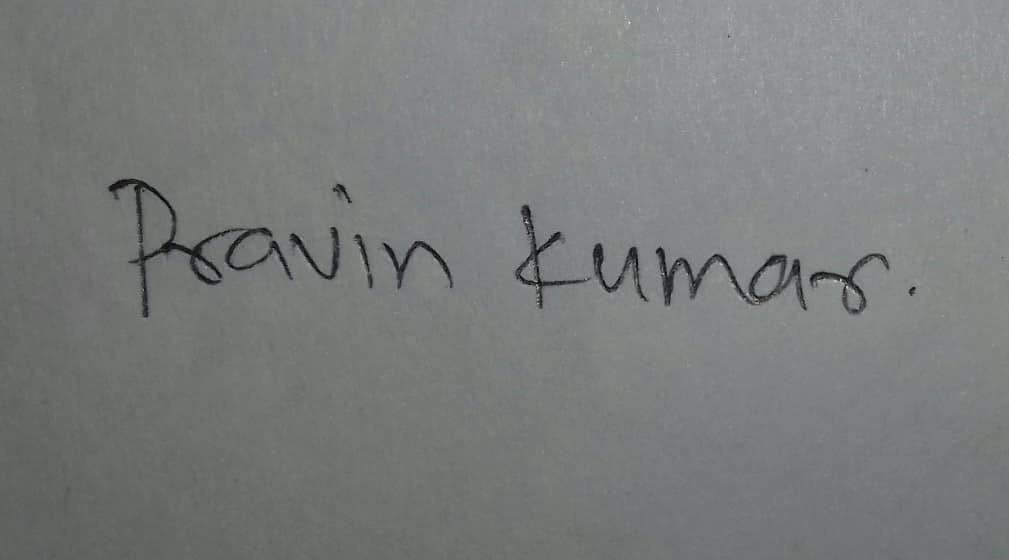 Pravin Kumar.